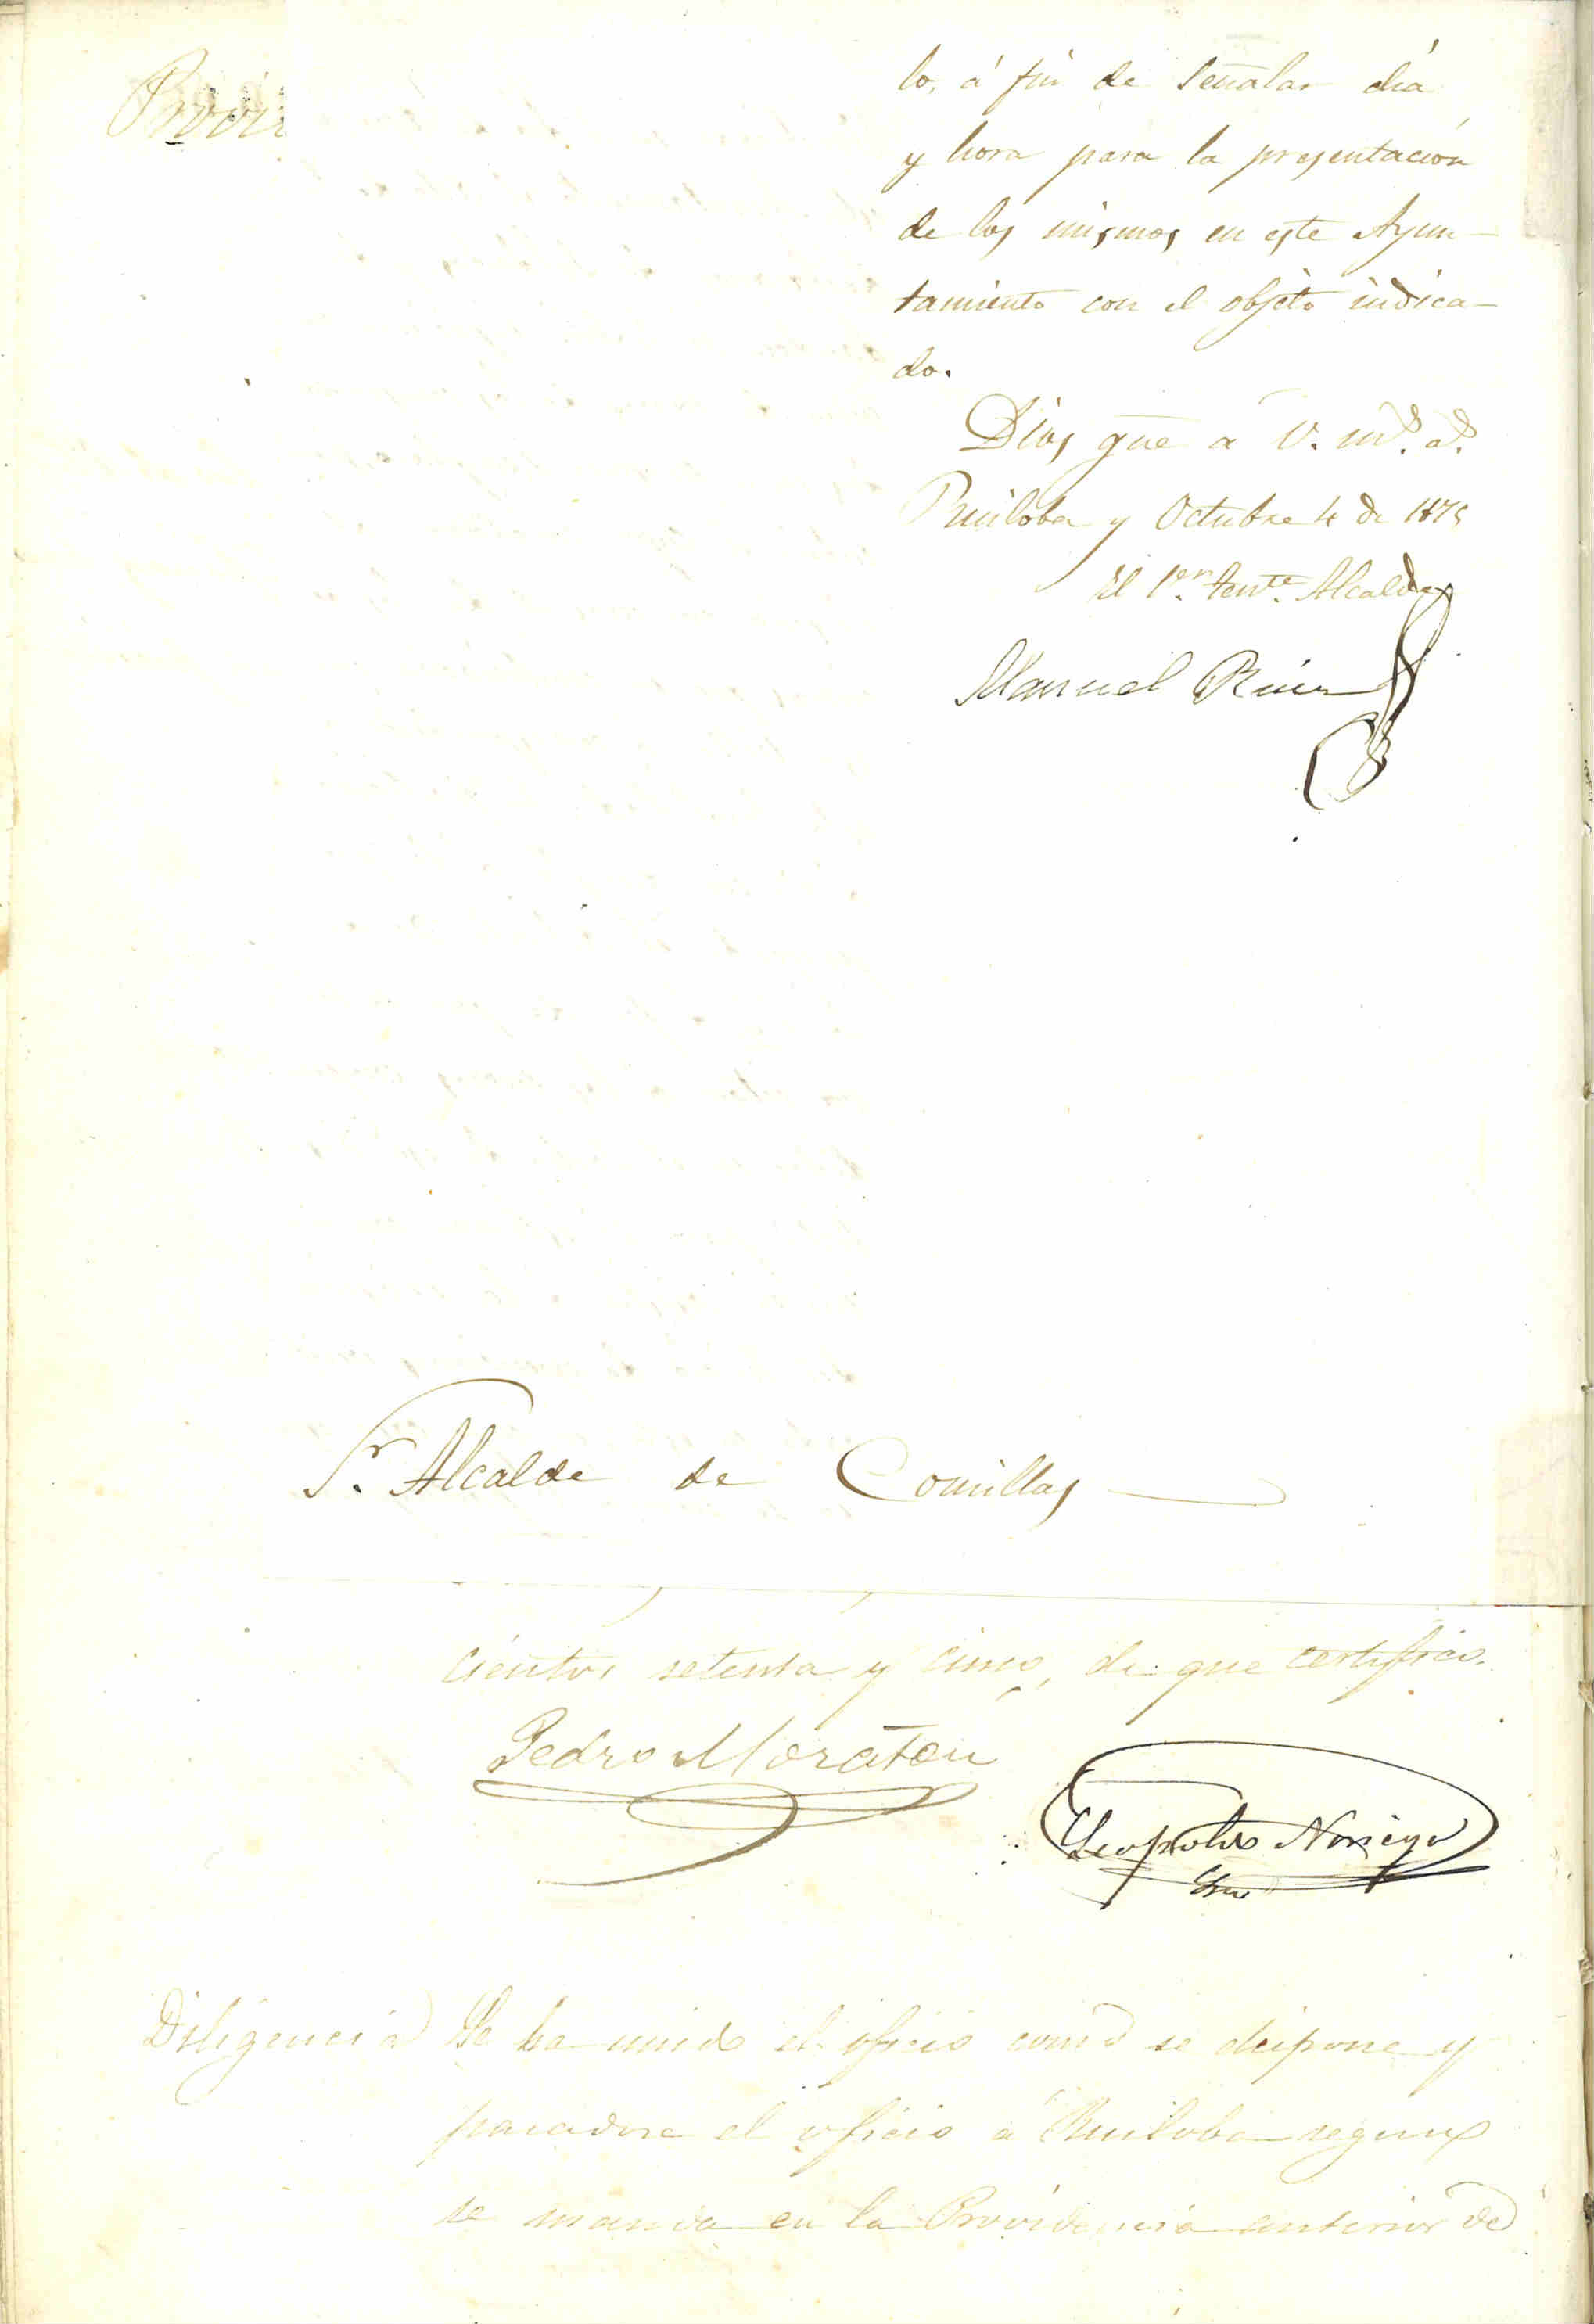 Provi
lo, á fin de señalar dia
y hora para la presentación
de los mismos en este Ayun-
tamiento con el objeto indica-
do.
Dios gue a V. ms. as.
Ruiloba y Octubre 4 de 1875
El 1er. tente. Alcalde
Manuel Ruiz
Sr. Alcalde de Comillas
cientos setenta y cinco, de que certifico.
Pedro Moraton
Leopoldo Noriega
Srio
Diligencia Se ha unido el oficio como se dispone y
pasadose el oficio á Ruiloba segun
se manda en la Providencia anterior de